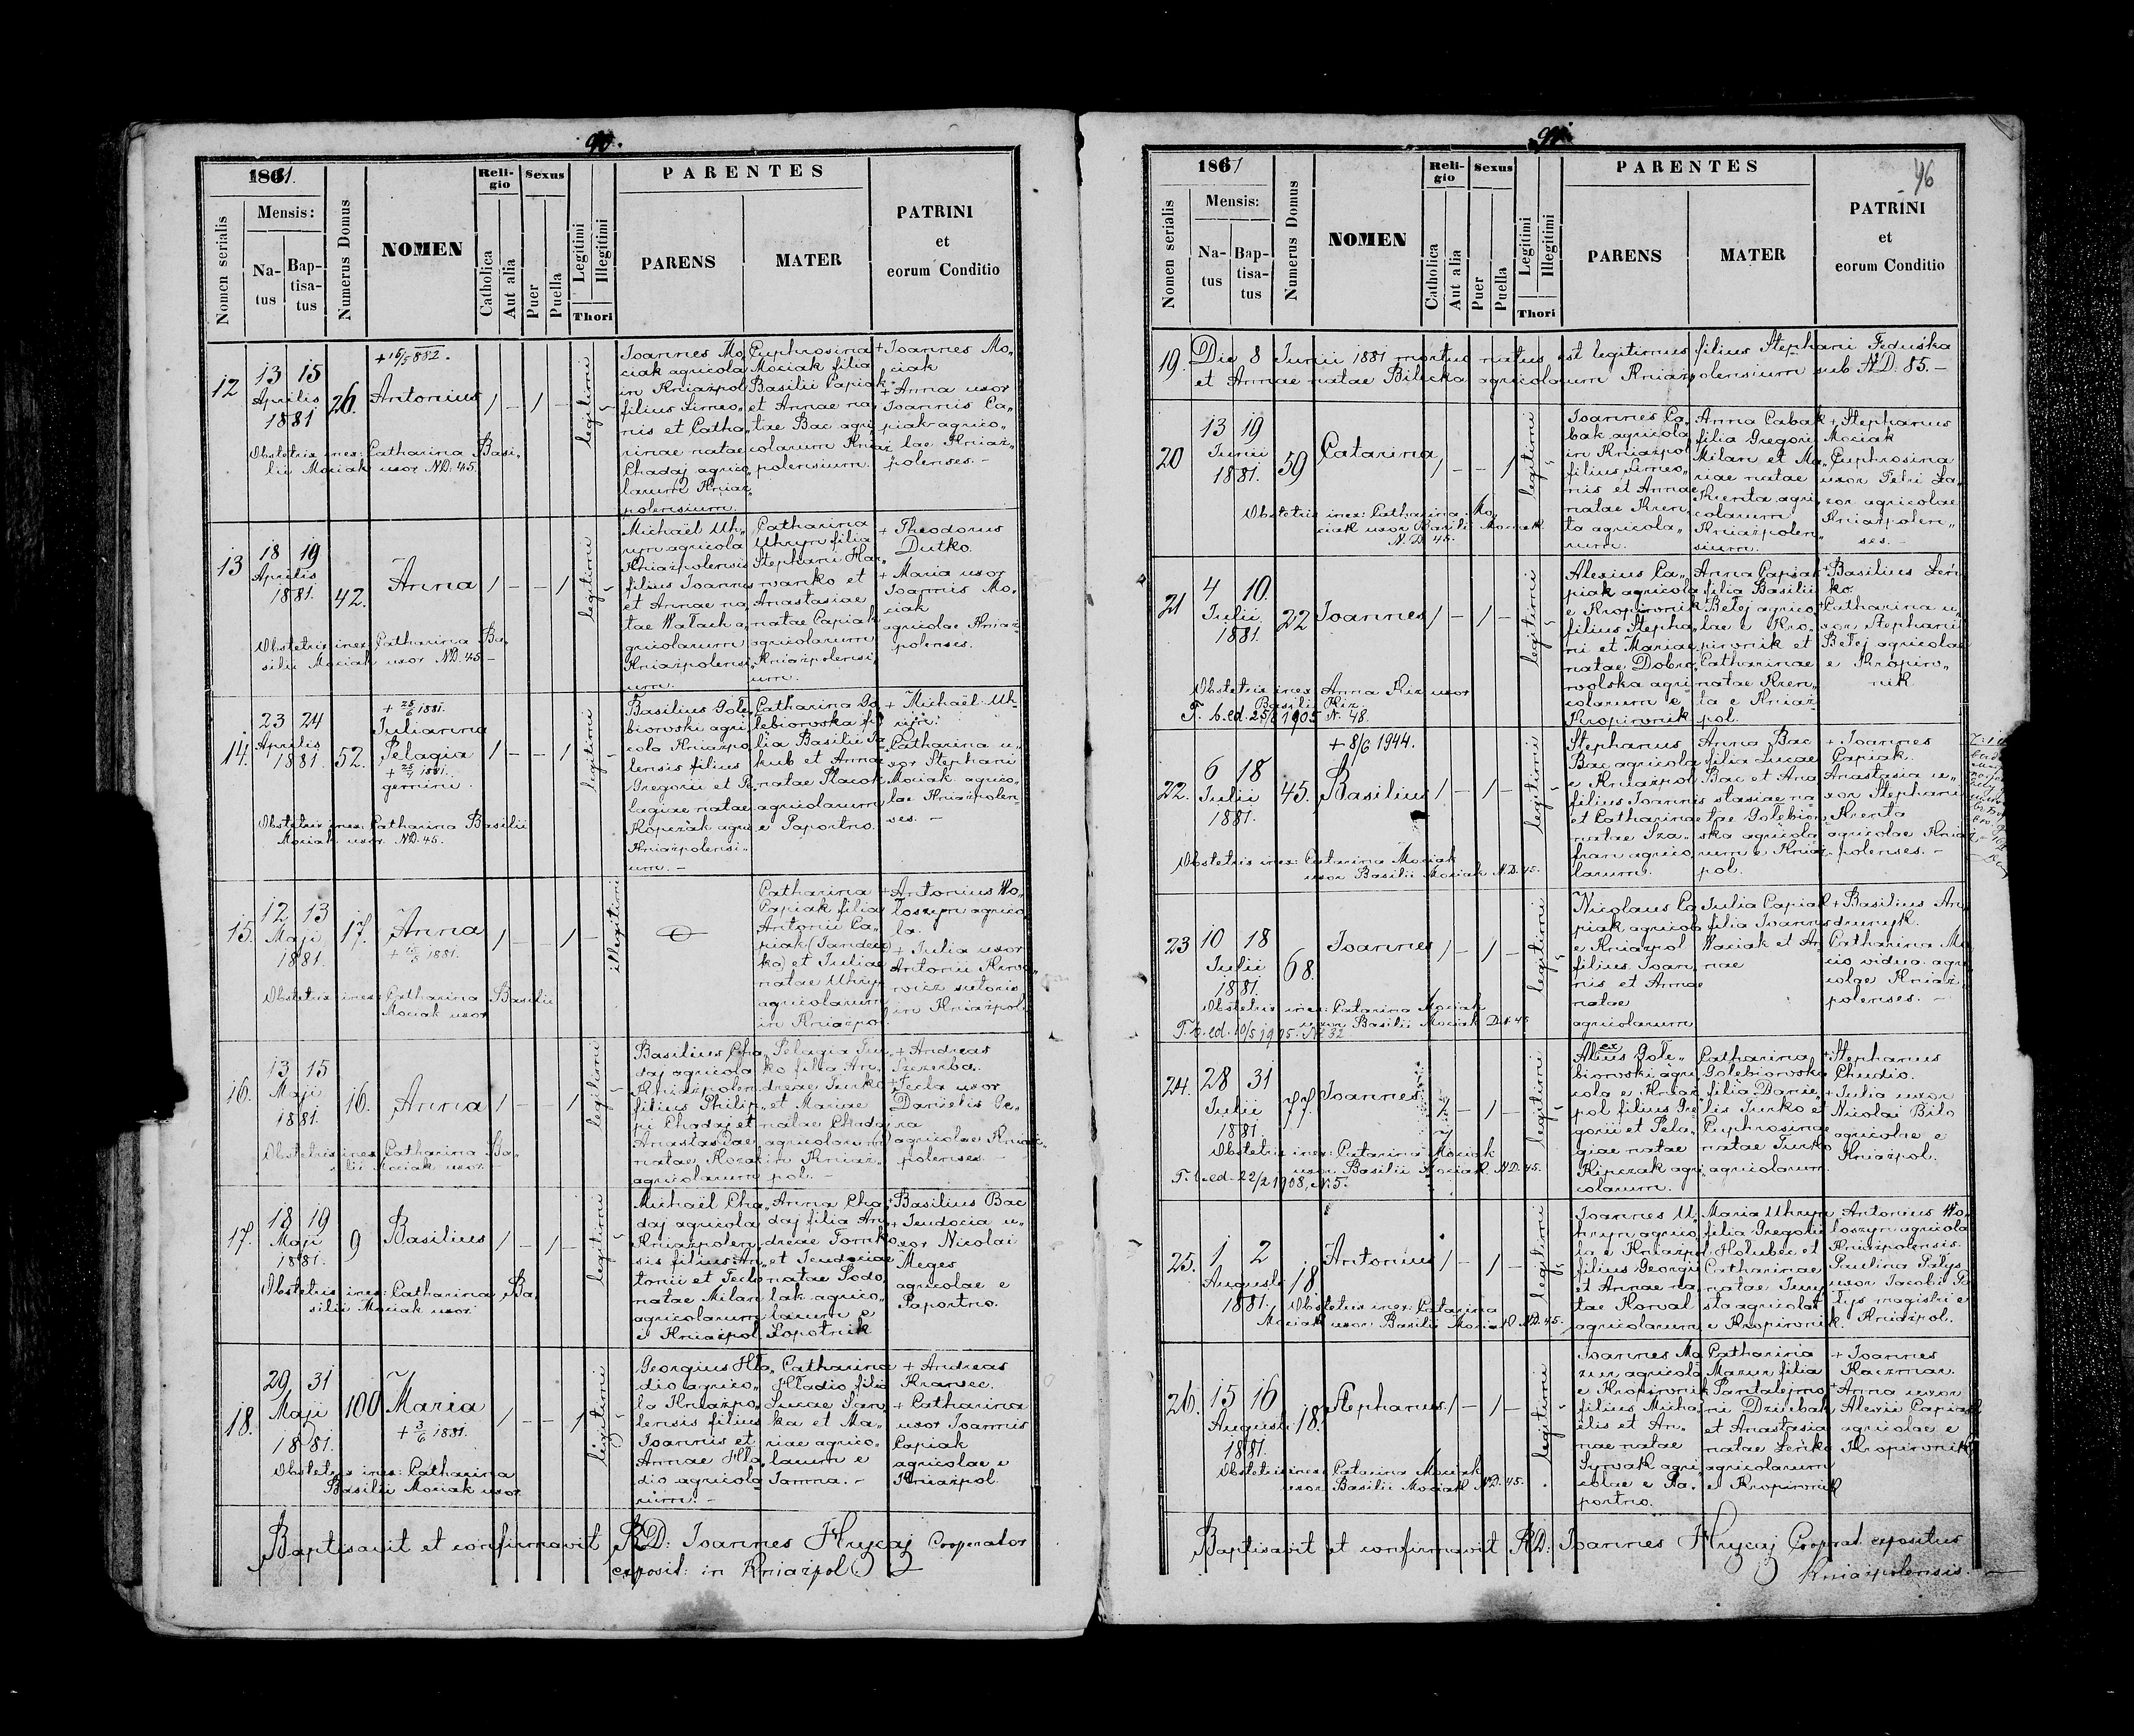 90.
1881.
Nomen serialis
Mensis:
Na-
tus
Bap-
tisa-
tus
Numerus Domus
NOMEN
Reli-
gio
Catholica
Aut alia
Sexus
Puer
Puella
Legitimi
Illegitimi
Thori
PARENTES
PARENS
MATER
PATRINI
et
eorum Conditio
12
13 15
Aprilis
1881
26.
+ 16/5 882.
Antonius
1 – 1 –
legitimi
Joannes Mo„
ciak agricola
in Kniazpol
filius Simeo„
nis et Catha„
rinae natae
Chadaj agrico„
larum Kniaz„
polensium.
Euphrosina
Mociak filia
Basilii Capiak
et Annae na„
tae Bac agri„
colarum Kniaz„
polensium.
+ Joannes Mo„
ciak
+ Anna uxor
Joannis Ca„
piak agrico„
lae Kniaz„
polenses. –
Obstetrix inex: Catharina Basi„
lii Mociak uxor ND. 45.
13
18 19
Aprilis
1881.
42.
Anna
1 – – 1
legitimi
Michaël Uh„
ryn agricola
Kniazpolensis
filius Joannis
et Annae na„
tae Watach a„
gricolarum
Kniazpolensi„
um.
Catharina
Uhryn filia
Stephani Ha„
rvanko et
Anastasiae
natae Capiak
agricolarum
Kniazpolensi„
um.
+ Theodorus
Dutko.
+ Maria uxor
Joannis Mo„
ciak
agricolae Kniaz„
polenses.
Obstetrix inex: Catharina Ba„
silii Mociak uxor ND. 45 –
14.
23 24
Aprilis
1881.
52.
+ 25/6 1881.
Julianna
Pelagia
+ 25/7 1881.
gemini.
1 – – 1
legitimi
Basilius Gole„
biowski agri„
cola Kniazpo„
lensis filius
Gregorii et Pe„
lagiae natae
Kopczak agri„
Kniazpolensi„
um. –
Catharina Go„
lebiowska fi„
lia Basilii Ja„
kub et Annae
natae Stacok
agricolarum
e Paportno.
+ Michaël Uh„
ryn.
Catharina u„
xor Stephani
Mociak agrico„
lae Kniazpolen„
ses. –
Obstetrix inex: Catharina Basilii
Mociak uxor ND. 45.
15.
12 13
Maji
1881.
17.
Anna
1 – – 1 –
illegitimi
Catharina
Capiak filia
Antonii Ca„
piak (Sandec„
ka) et Juliae
natae Uhryn
agricolarum
in Kniazpol.
+ Antonius Wo„
loszyn agrico„
la.
+ Julia uxor
Antonii
sutoris
in Kniazpol.
Obstetrix inex: Catharina Basilii
Mociak uxor
16.
13 15
Maji
1881.
16.
Anna
1 – – 1
legitimi
Basilius Cha„
daj agricola
Kniazpolen„
filius Philip„
pi Chadaj et
Anastasiae
natae Kozak
agricolarum
Pelagia Jur„
ko filia An„
dreae Jurko
et Mariae
natae Chadaj
agricolarum
in Kniaz„
pol. –
+ Andreas
Szczerba.
+ Tecla uxor
Danielis Ge„
ra
agricolae Kniaz„
polenses. –
Obstetrix inex: Catharina Ba„
silii Mociak uxor –
17.
18 19
Maji
1881.
9
Basilius
1 – 1 –
legitimi
Michaël Cha„
daj agricola
Kniazpolen„
sis filius An„
tonii et Teclae
natae Milan
agricolarum
e Kniazpol
Anna Cha„
daj filia An„
dreae Fornko
et Eudociae
natae Podo„
lak agrico„
larum e
Lopotnik
+ Basilius Bac
+ Eudocia u„
xor Nicolai
Meges
agricolae e
Paportno.
Obstetrix inex: Catharina Ba„
silii Mociak uxor
18.
29 31
Maji
1881.
100
Maria
+ 3/6 1881.
1 – – 1
legitimi
Georgius Hla„
dio agrico„
la Kniazpo„
lensis filius
Joannis et
Annae Hla„
dio agricola„
rum. –
Catharina
Hladio filia
Lucae San„
ka et Ma„
riae agrico„
larum e
Jamna. –
+ Andreas
Krawec.
+ Catharina
uxor Joannis
Capiak
agricolae e
Kniazpol.
Obstetrix inex: Catharina
Basilii Mociak uxor
Baptisavit et confirmavit RD: Joannes Hrycaj Cooperator
exposit: in Kniazpol
91.
46
1881
Nomen serialis
Mensis:
Na-
tus
Bap-
tisa-
tus
Numerus Domus
NOMEN
Reli-
gio
Catholica
Aut alia
Sexus
Puer
Puella
Legitimi
Illegitimi
Thori
PARENTES
PARENS
MATER
PATRINI
et
eorum Conditio
19. Die 8 Junii 1881 mortuo natus est legitimus filius Stephani Feduska
et Annae natae Bilecka agricolarum Kniazpolensium sub ND: 85. –
20
13 19
Junii
1881.
59
Catarina
1 – – 1
legitimi
Joannes Ca„
bak agricola
in Kniazpol
filius Simeo„
nis et Annae
natae Kren„
ta agricola„
rum.
Anna Cabak
filia Gregorii
Milan et Ma„
riae natae
Krenta agri„
colarum
Kniazpolen„
sium.
+ Stephanus
Mociak
Euphrosina
uxor Petri La„
zor agricolae
Kniazpolen„
ses. –
Obstetrix inex: Catharina Mo„
ciak uxor Basilii Mociak
N.D. 45.
21
4 10.
Julii
1881.
22
Joannes
1 – 1 –
legitimi
Alexius Ca„
piak agricola
e Kropiwnik
filius Stepha„
ni et Mariae
natae Dobro„
wolska agri„
colarum e
Kropiwnik
Anna Capiak
filia Basilii
Betej agrico„
lae e Kro„
piwnik et
Catharinae
natae Kren„
ta e Kniaz„
pol.
+ Basilius Len„
ko.
+ Catharina u„
xor Stephani
Betej agricolae
e Kropiw„
nik.
Obstetrix inex: Anna Kiz uxor
Basilii Kiz
T. b. ed. 25/2 1905 N. 48.
22.
6 18
Julii
1881.
45.
+ 8/6 1944.
Basilius
1 – 1 –
legitimi
Stephanus
Bac agricola
e Kniazpol
filius Joannis
et Catharinae
natae Sza„
fran agrico„
larum.
Anna Bac
filia Lucae
Bac et Ana„
stasiae na„
tae Golebiow„
ska agricola„
rum e Kniaz„
pol.
+ Joannes
Capiak.
Anastasia u„
xor Stephani
Krenta
agricolae Kniaz„
polenses. –
Obstetrix inex: Catarina Mociak
uxor Basilii Mociak ND. 45.
23
10 18
Julii
1881.
68.
Joannes
1 – 1 –
legitimi
Nicolaus Ca„
piak agricola
e Kniazpol
filius Joan„
nis et Annae
natae
agricolarum
Julia Capiak
filia Joannis
Waciak et An„
nae
+ Basilius An„
drunyk.
Catharina Ma„
cio vidua agri„
colae Kniaz„
polenses. –
Obstetrix inex: Catarina Mociak
uxor Basilii Mociak D.N. 45
T. b. ed. 10/5 1905. N. 32
24.
28 31
Julii
1881.
77.
Joannes
1 – 1 –
legitimi
Alexius Gole„
biowski agri„
cola e Kniaz„
pol filius Gre„
gorii et Pela„
giae natae
Kipczak agri„
colarum.
Catharina
Golebiowska
filia Danie„
lis Jurko et
Euphrosinae
natae Jurko
agricolarum.
+ Stephanus
Chudio.
+ Julia uxor
Nicolai Bilo
agricolae e
Kniazpol.
Obstetrix inex: Catarina Mociak
uxor Basilii Mociak ND. 45.
T. b. ed. 22/2 1908, N. 5.
25.
1 2
Augusti
1881.
18.
Antonius
1 – 1 –
legitimi
Joannes U„
hryn agrico„
la e Kniazpol
filius Georgii
et Annae na„
tae Kowal
agricolarum
Maria Uhryn
filia Gregorii
Holubec et
Catharinae
natae
agricolar.
e Kropiwnik.
Antonius Wo„
loszyn agricola
Kniazpolensis.
Paulina Patys
uxor Jacobi Pa„
tys magistri e
Kniazpol.
Obstetrix inex: Catarina
Mociak uxor Basilii Mociak ND. 45.
26.
15 16
Augusti
1881.
18.
Stephanus
1 – 1 –
legitimi
Joannes Ma„
zur agricola
e Kropiwnik
filius Micha„
elis et An„
nae natae
Syrvak agri„
colae e Pa„
portno.
Catharina
Mazur filia
Pantalejmo„
ni Dziubak
et Anastasia
natae Lenko
agricolarum
e Kropiwnik
+ Joannes
Kaczmar.
+ Anna uxor
Alexii Capiak
agricolae e
Kropiwnik
Obstetrix inex: Catarina Mociak
uxor Basilii Mociak ND. 45.
Baptisavit et confirmavit RD: Joannes Hrycaj Cooperat. expositus
Kniazpolensis.